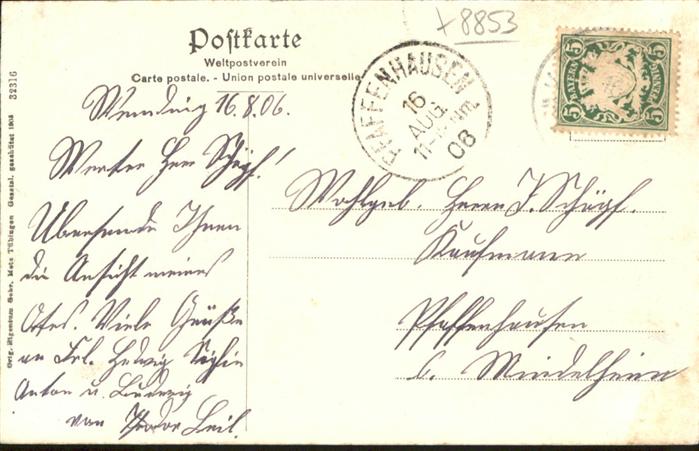 x 8853
Postkarte
Weltpostverein
Carte postale. - Union postale universelle
PFAFFENHAUSEN
16
AUG.
11-12 Vm
06
5 5
BAYERN
5 5
32316
Orig. Pigmentan Gebr. Metz Tübingen Gesetzl. geschützt 1903
16.8.06.
Werter Herr Schöpf!
Übersende Ihnen
die Ansicht meines
Ortes. Viele Grüße
an Frl. Hedwig Sophie
Anton u. Ludwig
von Theodor Leil.
Wohlgeb. Herrn J. Schöpf.
Kaufmann
Pfaffenhausen
b. Mindelheim